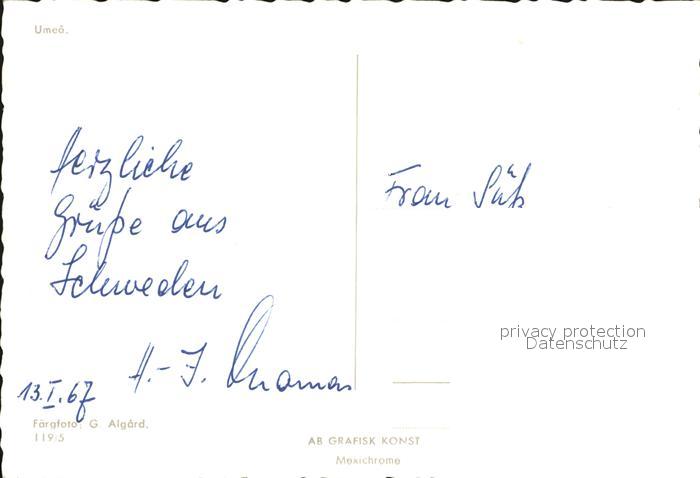 Umeå.
Herzliche
Grüße aus
Schweden
H.-J. Thomas
13.I.67
Frau Süß
privacy protection
Datenschutz
Färgfoto: G. Algård.
119/5
AB GRAFISK KONST
Mexichrome